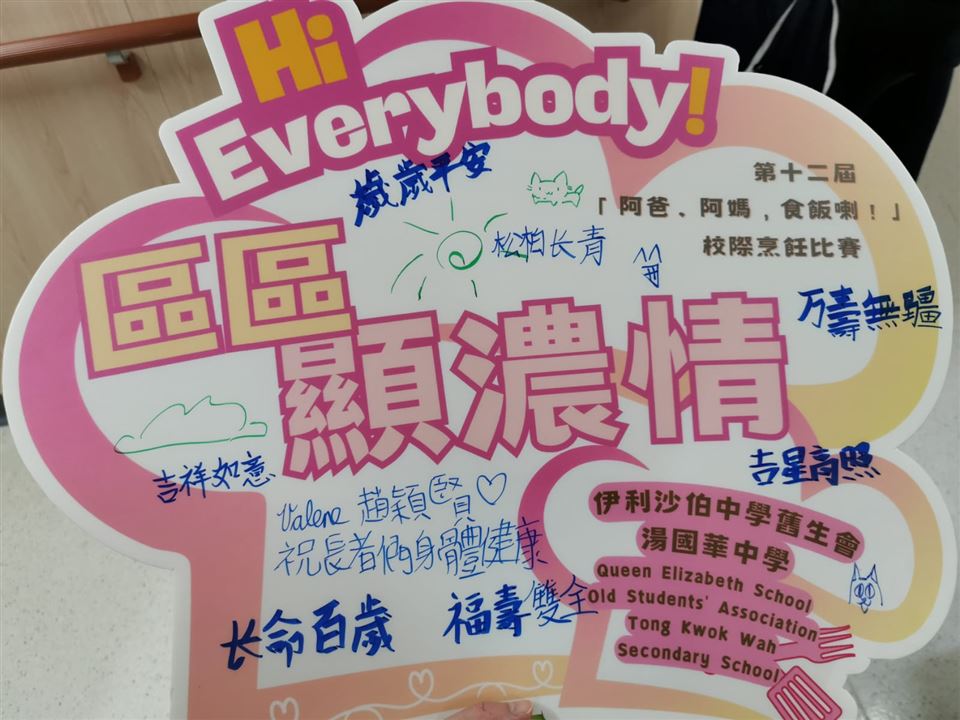 Hi
Everybody!
歲歲平安
第十二屆
「阿爸、阿媽，食飯喇！」
校際烹飪比賽
松柏长青
區區
万壽無疆
顯濃情
吉祥如意
吉星高照
Valene 趙穎賢♡
祝長者們身體健康
长命百歲
福壽雙全
伊利沙伯中學舊生會
湯國華中學
Queen Elizabeth School
Old Students' Association
Tong Kwok Wah
Secondary School